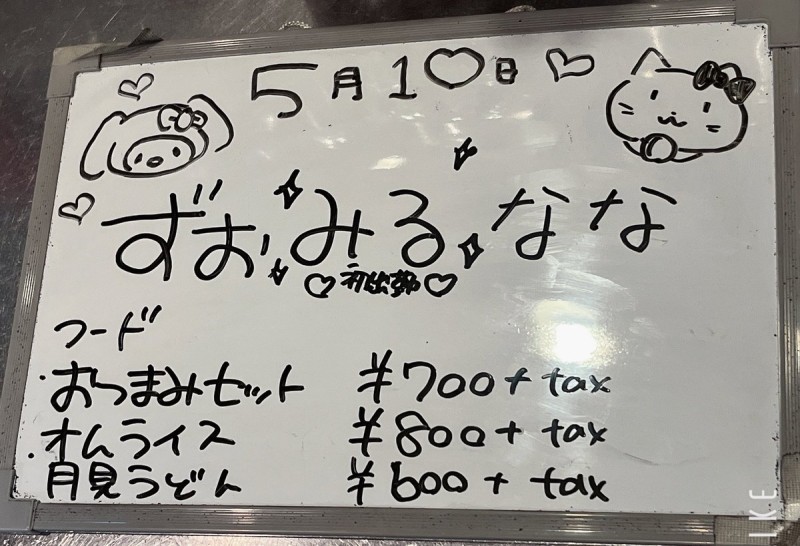 5月10日
ずお みる なな
初出勤
フード
・おつまみセット ¥700+tax
・オムライス ¥800+tax
月見うどん ¥600+tax
LIKE